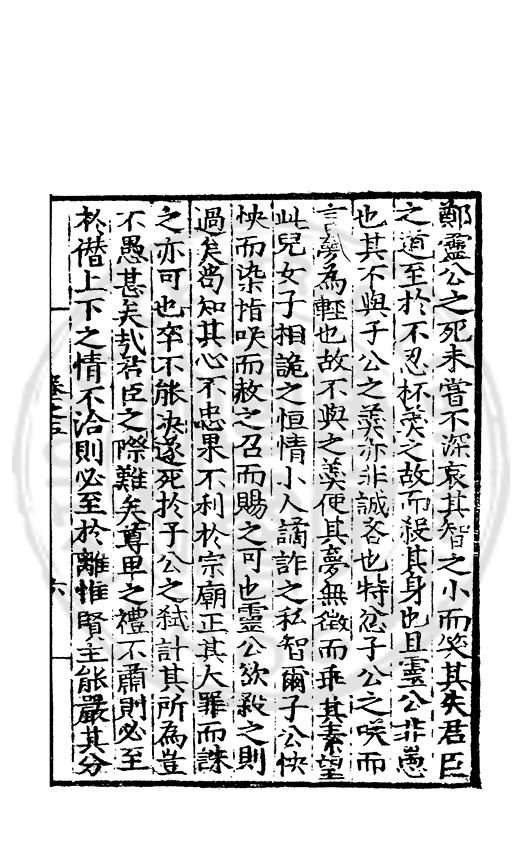 鄭靈公之死未嘗不深哀其智之小而笑其失君臣
之道至於不忍杯羹之故而殺其身也且靈公非悪
也其不與子公之羹亦非誠吝也特忿子公之咲而
言夢為輕也故不與之羹使其夢無徵而乖其素望
此兒女子相詭之恒情小人譎詐之私智爾子公怏
怏而染指咲而赦之召而賜之可也靈公欲殺之則
過矣尚知其心不忠果不利於宗廟正其大罪而誅
之亦可也卒不能决遂死於子公之弑計其所為豈
不愚甚矣㢤君臣之際難矣尊卑之禮不肅則必至
於僭上下之情不洽則必至於離惟賢主能嚴其分
卷之五
六